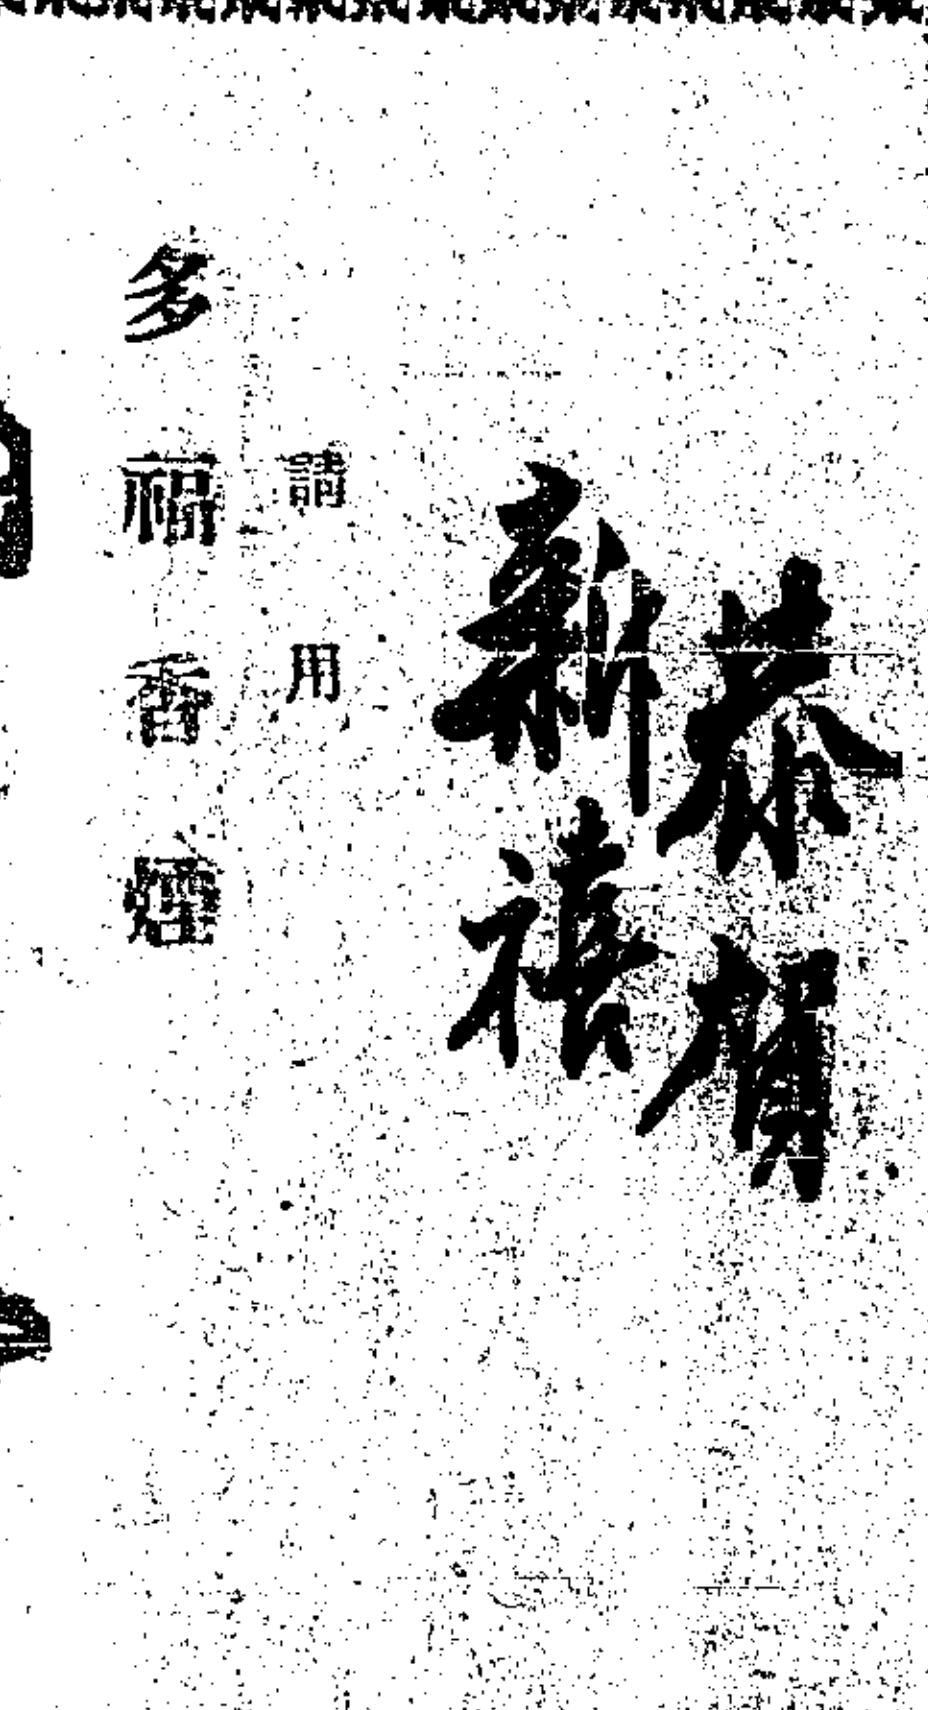 恭賀
新禧
請用
多福香煙